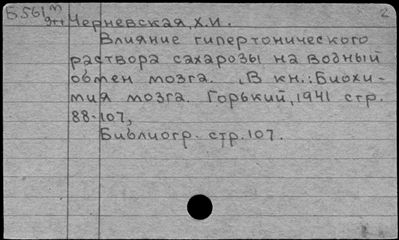 Б561 m 2
9тт Черневская, Х.И.
Влияние гипертонического
раствора сахарозы на водный
обмен мозга. „В кн.: Биохи-
мия мозга. Горький, 1941 стр.
88-107,
Библиогр. стр. 107.